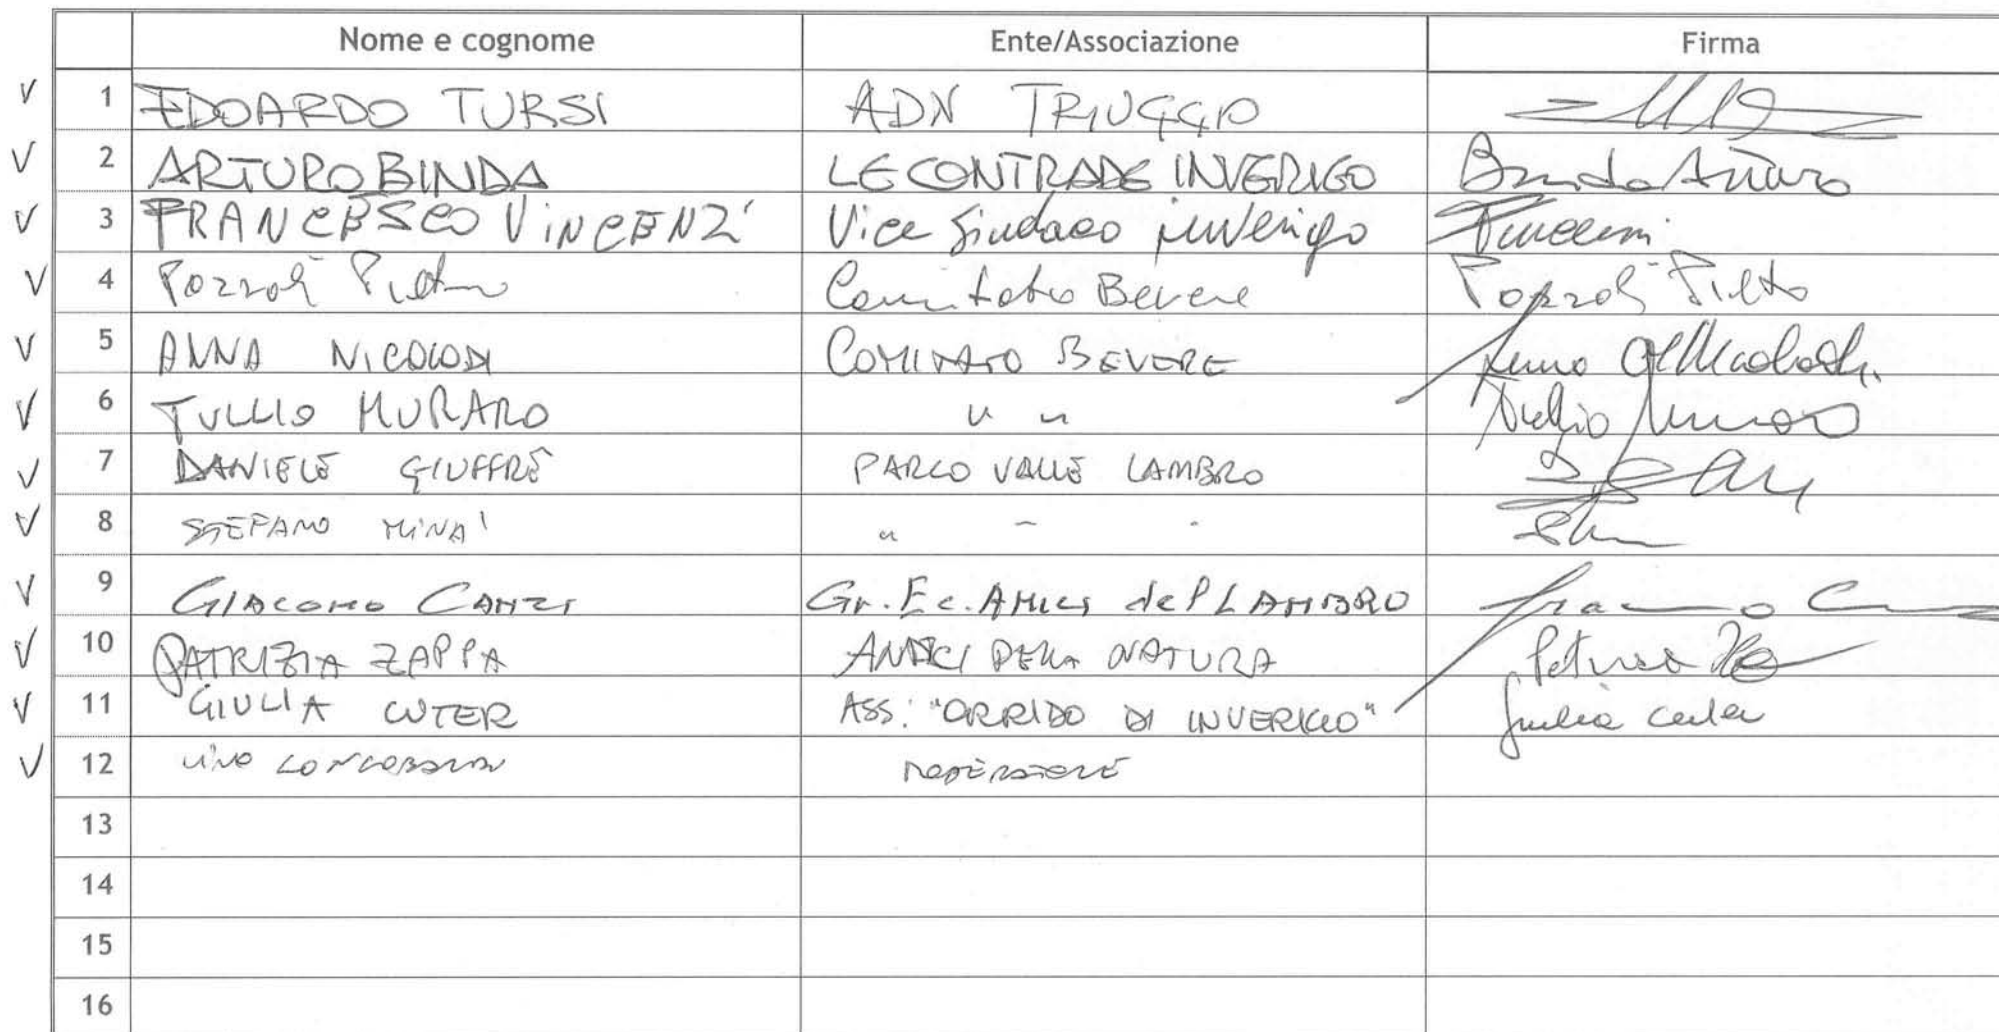 Nome e cognome Ente/Associazione Firma
√ 1 EDOARDO TURSI ADN TRIUGGIO
√ 2 ARTURO BINDA LE CONTRADE INVERIGO Binda Arturo
√ 3 FRANCESCO VINCENZI Vice Sindaco inverigo Vincenzi
√ 4 Pozzoli Pietro Comitato Bevere Pozzoli Pietro
√ 5 ANNA NICOLODI COMITATO BEVERE Anna
√ 6 TULLIO MURARO " " Tullio Muraro
√ 7 DANIELE GIUFFRÈ PARCO VALLE LAMBRO
√ 8 STEFANO MINA' " " "
√ 9 GIACOMO CANZI Gr. Ec. AMICI del LAMBRO
√ 10 PATRIZIA ZAPPA AMICI DELLA NATURA
√ 11 GIULIA CUTER ASS: "ORRIDO DI INVERIGO" Giulia Cuter
√ 12
13
14
15
16